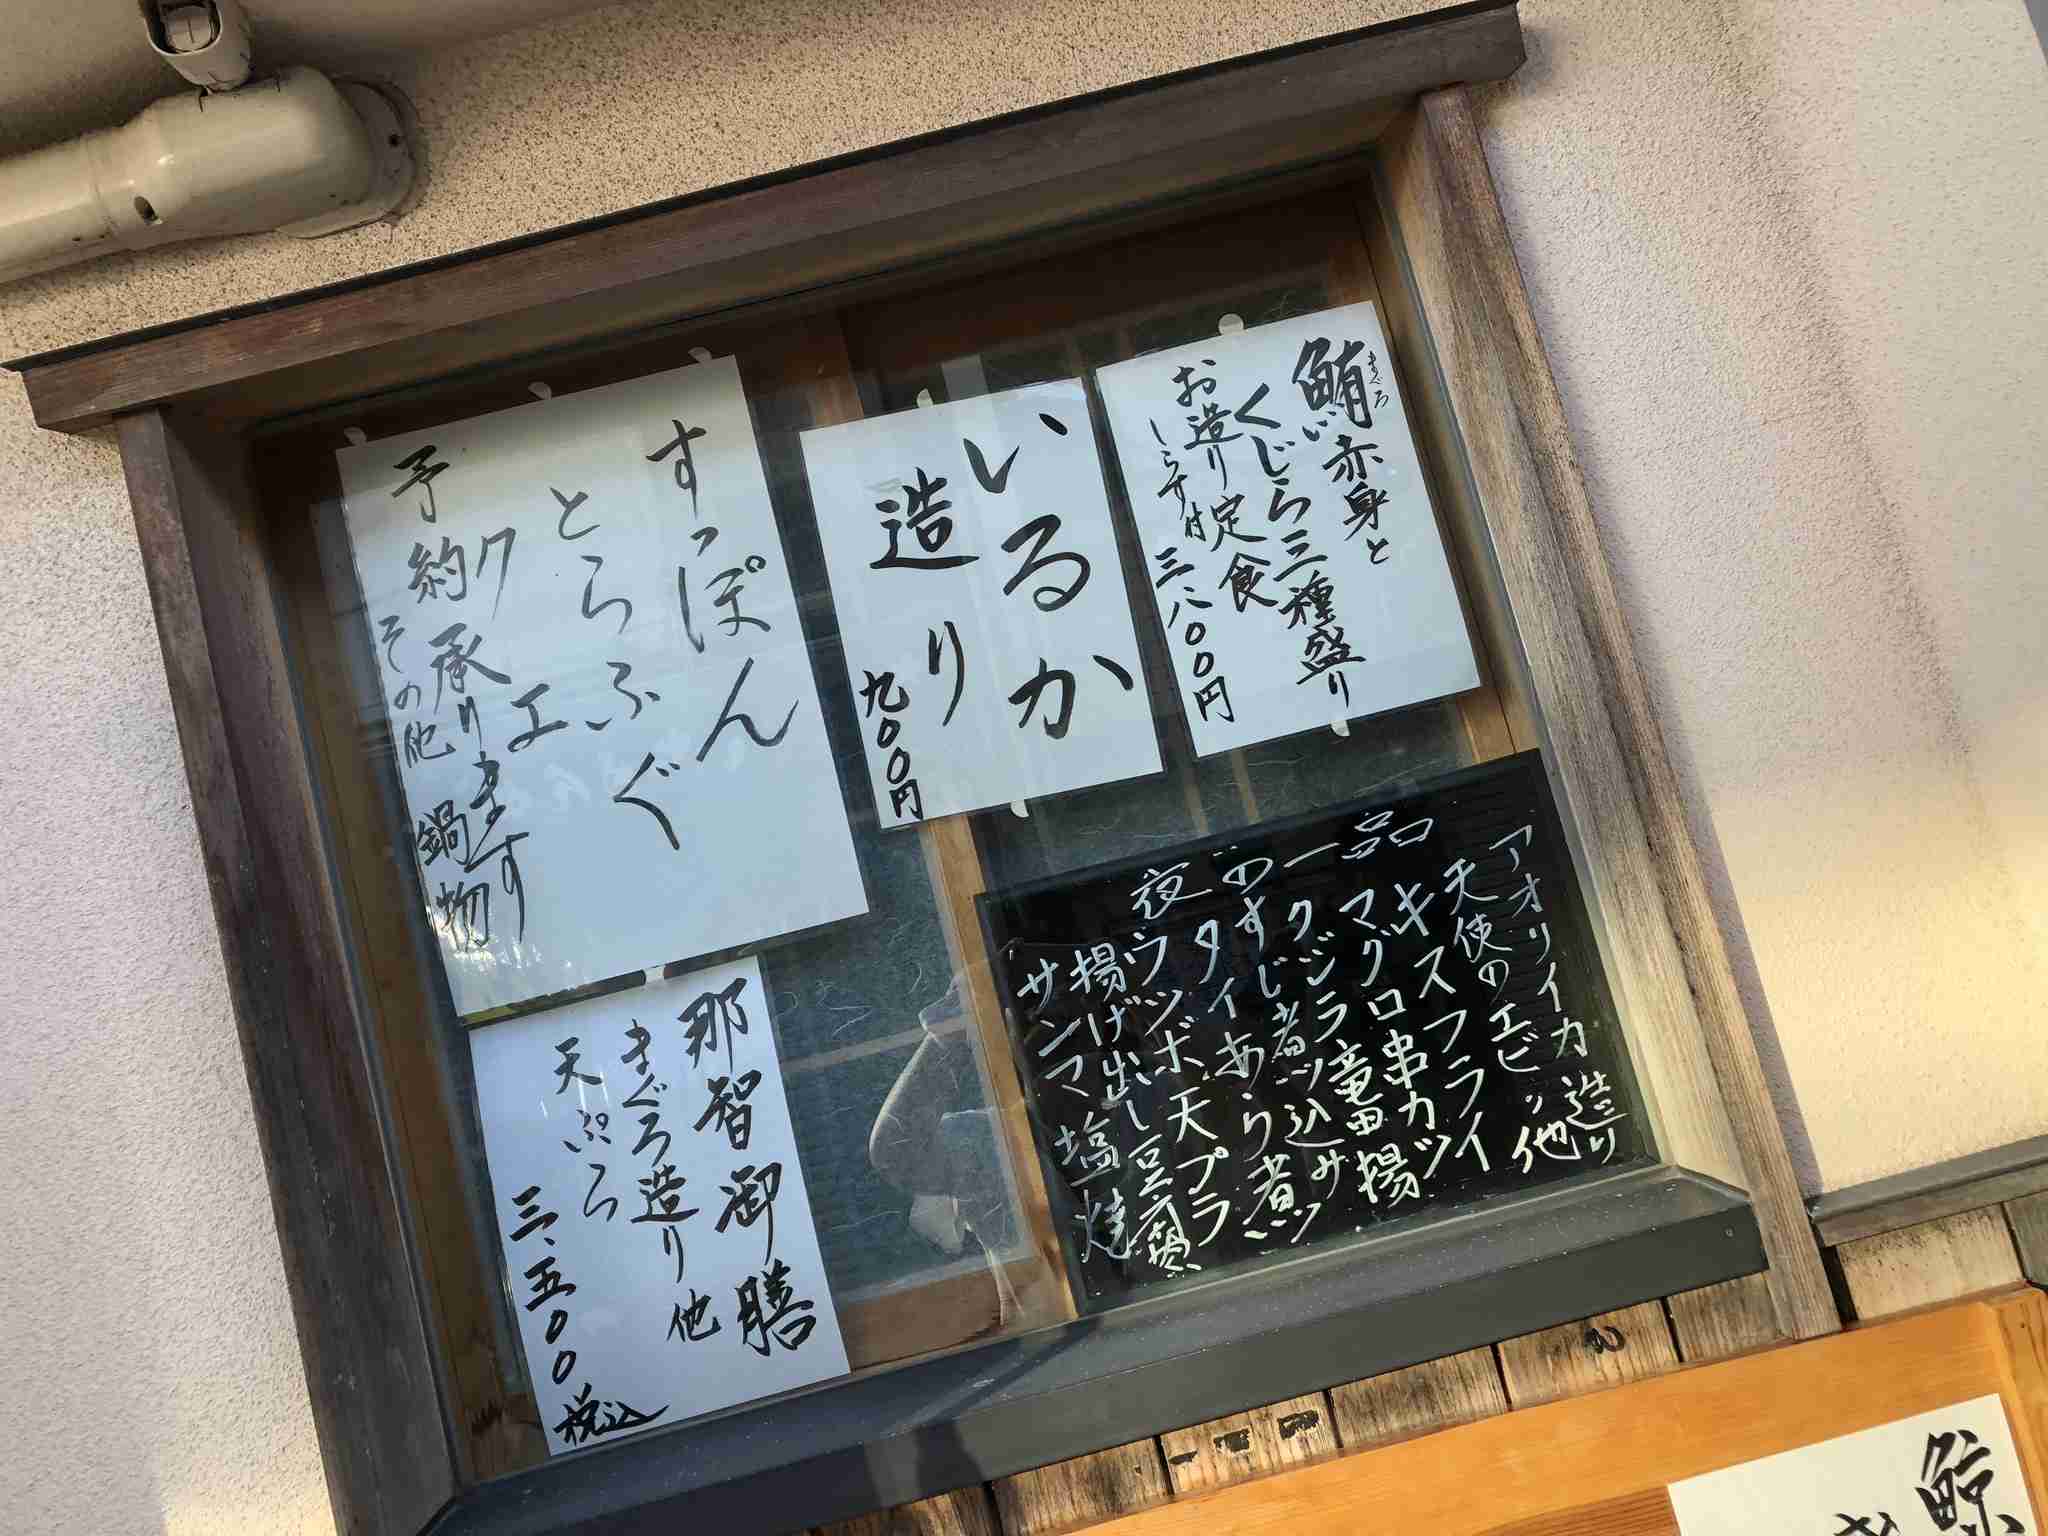 鮪赤身と
まぐろ
くじら三種盛り
お造り定食
しらす付 三、八〇〇円
いるか
造り
九〇〇円
すっぽん
とらふぐ
クエ
予約承ります
その他 鍋物
夜の一品
アオリイカ造り
天使のエビ 他
キスフライ
マグロ串カツ
クジラ竜田揚
すじ煮込み
タイあら煮
ウツボ天プラ
揚げ出し豆腐
サンマ塩焼
那智御膳
まぐろ造り 他
天ぷら
三、五〇〇税込
鯨